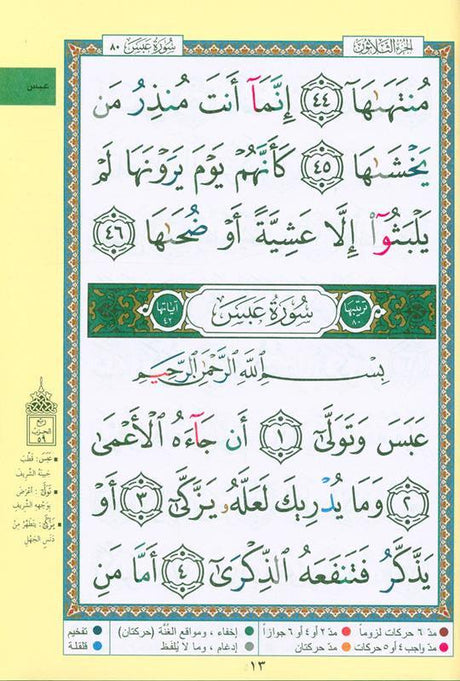 الجزء الثلاثون
سورة عبس ٨٠
عبس
مُنتَهَىٰهَآ ٤٤ إِنَّمَآ أَنتَ مُنذِرُ مَن
يَخْشَىٰهَا ٤٥ كَأَنَّهُمْ يَوْمَ يَرَوْنَهَا لَمْ
يَلْبَثُوٓا۟ إِلَّا عَشِيَّةً أَوْ ضُحَىٰهَا ٤٦
ترتيبها ٨٠ سُورَةُ عَبَسَ آياتها ٤٢
بِسْمِ ٱللَّهِ ٱلرَّحْمَٰنِ ٱلرَّحِيمِ
عَبَسَ وَتَوَلَّىٰٓ ١ أَن جَآءَهُ ٱلْأَعْمَىٰ
٢ وَمَا يُدْرِيكَ لَعَلَّهُۥ يَزَّكَّىٰٓ ٣ أَوْ
يَذَّكَّرُ فَتَنفَعَهُ ٱلذِّكْرَىٰٓ ٤ أَمَّا مَنِ
ربع
الحزب
٥٩
عَبَسَ: قَطَّبَ
جَبينَهُ الشَّريفَ
تَوَلَّىٰ: أَعْرَضَ
بِوَجْهِهِ الشَّريفِ
يَزَّكَّىٰ: يَتَطَهَّرُ مِنْ
دَنَسِ الجَهْلِ
مدّ ٦ حركات لزوماً مدّ ٢ أو ٤ أو ٦ جوازاً إخفاء، ومواقع الغُنَّة (حركتان) تفخيم
مدّ واجب ٤ أو ٥ حركات مدّ حركتان إدغام، وما لا يُلفَظ قلقلة
١٣